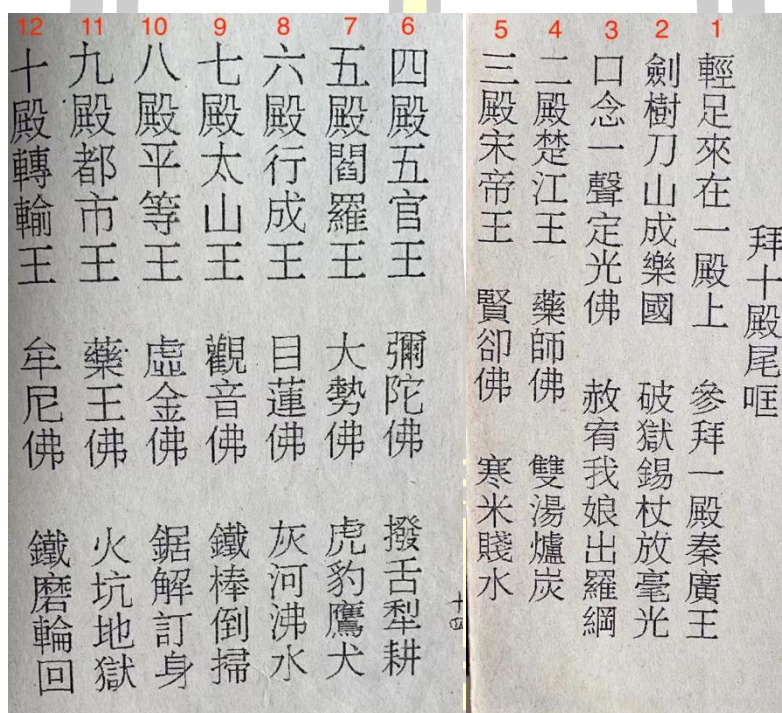 拜十殿尾哐
1
輕足來在一殿上 參拜一殿秦廣王
2
劍樹刀山成樂國 破獄錫杖放毫光
3
口念一聲定光佛 赦宥我娘出羅綱
4
二殿楚江王 藥師佛 雙湯爐炭
5
三殿宋帝王 賢卻佛 寒米賤水
十四
6
四殿五官王 彌陀佛 撥舌犁耕
7
五殿閻羅王 大勢佛 虎豹鷹犬
8
六殿行成王 目蓮佛 灰河沸水
9
七殿太山王 觀音佛 鐵棒倒掃
10
八殿平等王 虛金佛 鋸解訂身
11
九殿都市王 藥王佛 火坑地獄
12
十殿轉輸王 牟尼佛 鐵磨輪回